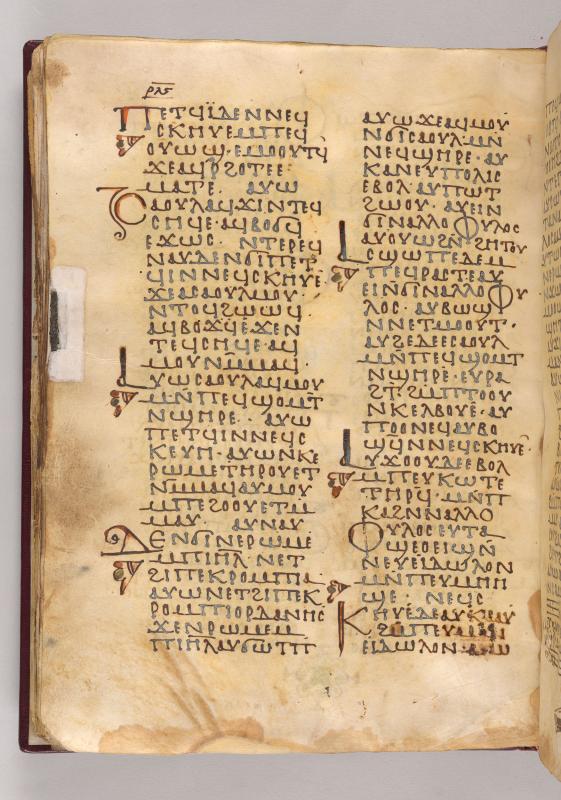 ⲣⲗⲋ
ⲡⲉⲧϥⲓϩⲉⲛⲛⲉϥ
ⲥⲕⲏⲩⲉⲙⲡⲉϥ
ⲟⲩⲱϣ·ⲉⲙⲟⲟⲩⲧϥ
ϫⲉⲁϥⲣϩⲟⲧⲉⲉ
ⲙⲁⲧⲉ· ⲁⲩⲱ
ⲥⲁⲟⲩⲗⲁϥϫⲓⲛⲧⲉϥ
ⲥⲏϥⲉ·ⲁϥⲃⲟϭϥ
ⲉϫⲱⲥ· ⲛⲧⲉⲣⲉϥ
ⲛⲁⲩⲇⲉⲛϭⲓⲡⲉⲧ
ϥⲓⲛⲛⲉϥⲥⲕⲏⲩⲉ̄
ϫⲉⲁⲥⲁⲟⲩⲗⲙⲟⲩ·
ⲛⲧⲟϥϩⲱⲱϥ
ⲁϥⲃⲟϫϥⲉϫⲉⲛ
ⲧⲉϥⲥⲏϥⲉ·ⲁϥ
ⲙⲟⲩⲛⲙ̄ⲙⲁϥ·
ⲁⲩⲱⲥⲁⲟⲩⲗⲁϥⲙⲟⲩ
ⲙⲛ̄ⲡⲉϥϣⲟⲙⲧ
ⲛϣⲏⲣⲉ· ⲁⲩⲱ
ⲡⲉⲧϥⲓⲛⲛⲉϥⲥ
ⲕⲉⲩⲏ·ⲁⲩⲱⲛⲕⲉ
ⲣⲱⲙⲉⲧⲏⲣⲟⲩⲉⲧ
ⲛⲙ̄ⲙⲁϥⲁⲩⲙⲟⲩ
ⲙⲡⲉϩⲟⲟⲩⲉⲧⲙ
ⲙⲁⲩ· ⲁⲩⲛⲁⲩ
ⲇⲉⲛϭⲓⲛⲉⲣⲱⲙⲉ
ⲙⲡⲓⲏ̄ⲗ̄·ⲛⲉⲧ
ϩⲓⲡⲉⲕⲣⲟⲙⲡⲓⲁ
ⲁⲩⲱⲛⲉⲧϩⲓⲡⲉⲕ
ⲣⲟⲙⲡⲓⲟⲣⲇⲁⲛⲏⲥ
ϫⲉⲛⲣⲱⲙⲉⲙ
ⲡⲓⲏ̄ⲗ̄ⲁⲩϭⲱⲧⲡ
ⲁⲩⲱϫⲉⲁϥⲙⲟⲩ
ⲛϭⲓⲥⲁⲟⲩⲗ·ⲙⲛ̄
ⲛⲉϥϣⲏⲣⲉ·ⲁⲩ
ⲕⲁⲛⲉⲩⲡⲟⲗⲓⲥ
ⲉⲃⲟⲗ·ⲁⲩⲡⲱⲧ
ϩⲱⲟⲩ· ⲁⲩⲉⲓⲛ
ϭⲓⲛⲁⲗⲗⲟⲫⲩⲗⲟⲥ
ⲁⲩⲟⲩⲱϩⲛ̄ϩⲏⲧⲟⲩ
ⲁⲥϣⲱⲡⲉⲇⲉⲙ
ⲡⲉϥⲣⲁⲥⲧⲉⲁⲩ
ⲉⲓⲛϭⲓⲛⲁⲗⲗⲟⲫⲩ
ⲗⲟⲥ·ⲁⲩⲃⲱϣϥ
ⲛⲛⲉⲧⲙⲟⲟⲩⲧ·
ⲁⲩϩⲉⲇⲉⲉⲥⲁⲟⲩⲗ
ⲙⲛ̄ⲡⲉϥϣⲟⲙⲧ
ⲛϣⲏⲣⲉ·ⲉⲩⲣⲁ
ϩⲧ·ϩⲙⲡⲧⲟⲟⲩ
ⲛⲕⲉⲗⲃⲟⲩⲉ·ⲁⲩ
ⲡⲟⲟⲛⲉϥⲁⲩⲃⲟ
ϣϥⲛⲛⲉϥⲥⲕⲏⲩⲉ·
ⲁⲩϫⲟⲟⲩⲇⲉⲉⲃⲟⲗ
ⲙⲡⲉⲩⲕⲱⲧⲉ
ⲧⲏⲣϥ·ⲙⲛ̄ⲡ
ⲕⲁϩⲛⲛⲁⲗⲗⲟ
ⲫⲩⲗⲟⲥⲉⲩⲧⲁ
ϣⲉⲟⲉⲓϣⲛ̄
ⲛⲉⲩⲉⲓⲇⲱⲗⲟⲛ
ⲙⲛ̄ⲡⲉⲩⲙⲏⲏ
ϣⲉ· ⲛⲉϥⲥ
ⲕⲏⲩⲉ̄ⲇⲉⲁⲩⲕⲁⲁⲩ
ϩⲙⲡⲉⲩⲙⲁⲛ
ⲉⲓⲇⲱⲗⲟⲛ·ⲁⲩⲱ